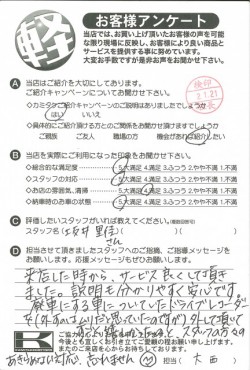 軽
お客様アンケート
当店では、お買い上げ頂いたお客様の声を可能
な限り現場に反映し、お客様により良い商品と
サービスを提供する事に努めています。
大変お手数ですが是非お声をお聞かせ下さい。
A 当店はご紹介を大切にしております。
ご紹介キャンペーンについてお聞かせ下さい。
検印
2.1.21
店長
<カミタケご紹介キャンペーンのご説明はありましたでしょうか
はい いいえ
<具体的にご紹介頂ける方とのご関係をお聞かせ頂けますでしょうか
ご親族 ご友人 職場の方 機会があればご紹介したい
B 当店を実際にご利用になった印象をお聞かせ下さい。
<総合的な満足度 5.大満足 4.満足 3.ふつう 2.やや不満 1.不満
<スタッフの対応 5.大満足 4.満足 3.ふつう 2.やや不満 1.不満
<お店の雰囲気、清掃 5.大満足 4.満足 3.ふつう 2.やや不満 1.不満
<納車時のお車の状態 5.大満足 4.満足 3.ふつう 2.やや不満 1.不満
C 評価したいスタッフがいれば教えてください。
スタッフ名
さん
D 担当させて頂きましたスタッフへのご指摘、ご指導メッセージを
お願いします。応援メッセージもぜひお願いします。
来店した時から、サービス良くして頂き
ました。説明も分かりやすく安心です。
についていたドライブレコーダー
スタッフの方々の
あきらめない対応、忘れません
今後とも宜しくお引き立てご愛顧の程お願い申し上げます。
またのご来店を心からお待ちしております。
担当 大西